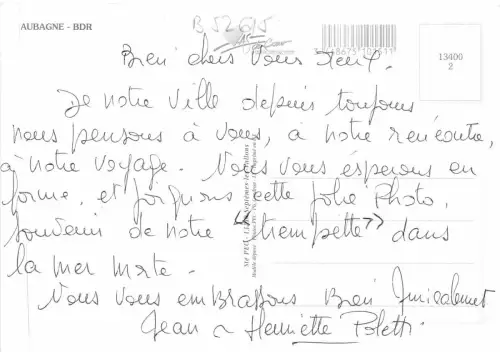 AUBAGNE - BDR
B 52615
13400
2
Bien chers Vous deux.
De notre ville depuis toujours
nous pensons à vous, à notre rencontre,
à notre voyage. Nous vous espérons en
forme, et joignons cette jolie Photo,
souvenir de notre "trempette" dans
la mer morte.
Nous vous embrassons Bien Amicalement
Jean ~ Henriette Poletti.